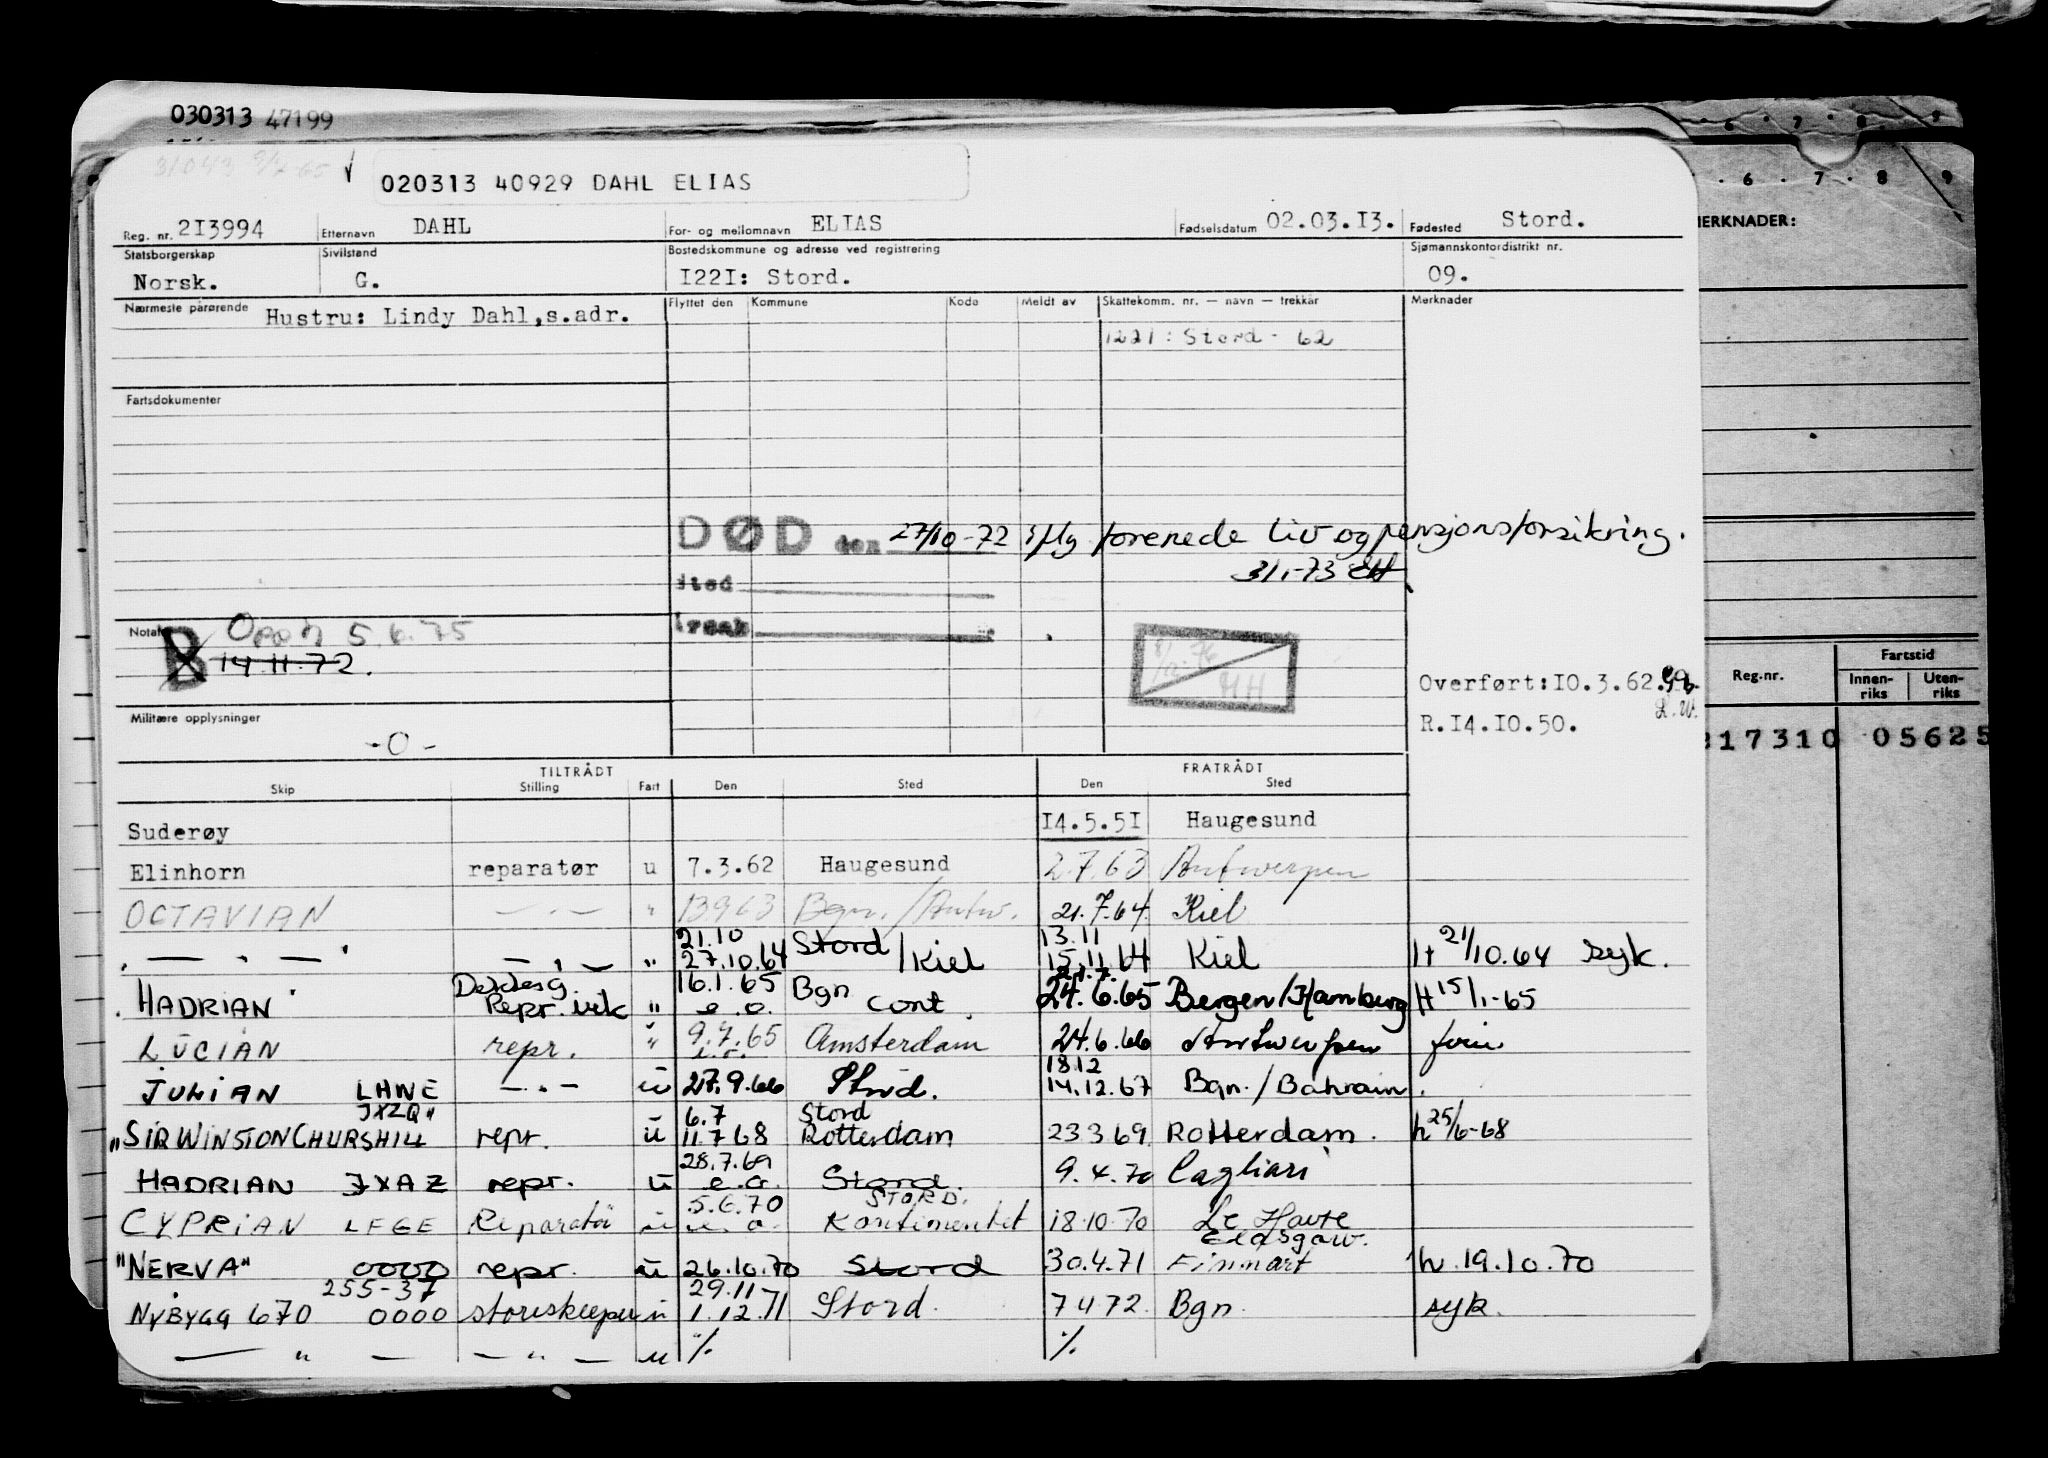 030313 47199
020313 40929 DAHL ELIAS
Reg. nr. 2I3994 Etternavn DAHL For- og mellomnavn ELIAS Fødselsdatum 02.03.I3. Fødested Stord.
Statsborgerskap Norsk. Sivilstand G. Bostedskommune og adresse ved registrering I22I: Stord. Sjømannskontordistrikt nr. 09.
Nærmeste pårørende Hustru: Lindy Dahl,s.adr.
Flyttet den Kommune Kode Meldt av Skattekomm. nr. — navn — trekkår Merknader
1221: Stord - 62
Fartsdokumenter
DØD den 27/10-72 iflg forenede liv og pensjonsforsikring.
31/1-73
sted
Notat
5.6.75
14.11.72.
Overført:IO.3.62.
R.I4.IO.50.
Militære opplysninger
-0-
TILTRÅDT FRATRÅDT
Skip Stilling Fart Den Sted Den Sted
Suderøy I4.5.5I Haugesund
Elinhorn reparatør u 7.3.62 Haugesund 2.7.63 Antwerpen
OCTAVIAN — . — " 13963 Bgn./Antw. 21.7.64 Kiel
— . — — . — " 21.10 27.10.64 Stord/Kiel 13.11 15.11.64 Kiel H 21/10.64 syk.
HADRIAN Repr. " 16.1.65 e.o. Bgn cont. 24.6.65 Bergen/Hamburg H 15/1-65
LUCIAN repr. " 9.7.65 Amsterdam 24.6.66 Antwerpen
JULIAN LHWE — . — u 27.9.66 Stord. 18.12 14.12.67 Bgn./Bahrain.
"SIR WINSTON CHURSHILL" JXZQ repr. u 6.7 11.7.68 Stord Rotterdam 23369 Rotterdam. h 25/6-68
HADRIAN JXAZ repr. u 28.7.69 e.o. Stord. 9.4.70 Cagliari
CYPRIAN LFGE Reparatør u 5.6.70 e.o. STORD. Kontinentet 18.10.70 Le Havre
"NERVA" 0000 repr. u 26.10.70 Stord 30.4.71 Glasgow. Finnart h. 19.10.70
NYBYGG 670 255-37 0000 storekeeper u 29.11 1.12.71 Stord. 7472 Bgn. syk.
— " — — " — u % %
6 . 7 . 8 9
MERKNADER:
Reg.nr. Fartstid
Innenriks Utenriks
17310 05625